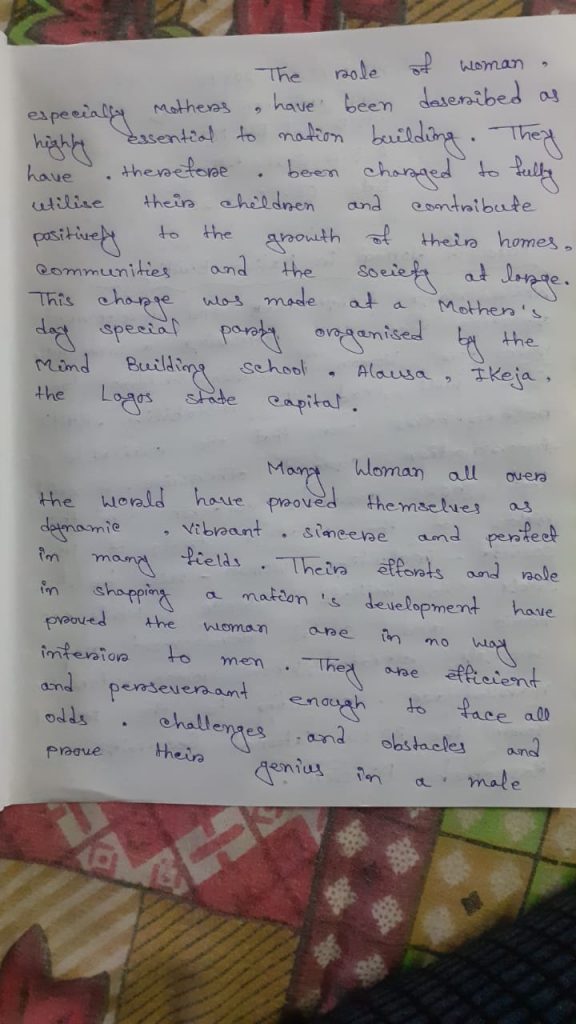 The role of woman,
especially Mothers, have been described as
highly essential to nation building. They
have, therefore, been charged to fully
utilise their children and contribute
positively to the growth of their homes,
communities and the society at large.
This charge was made at a Mother's
day special party oraganised by the
Mind Building school, Alausa, IKeja,
the Lagos state capital.
Many Woman all over
the world have proved themselves as
dynamic, vibrant, sincere and perfect
in many fields. Their efforts and role
in shapping a nation's development have
proved the woman are in no way
inferior to men. They are efficient
and perseverant enough to face all
odds, challenges and obstacles and
prove their genius in a male